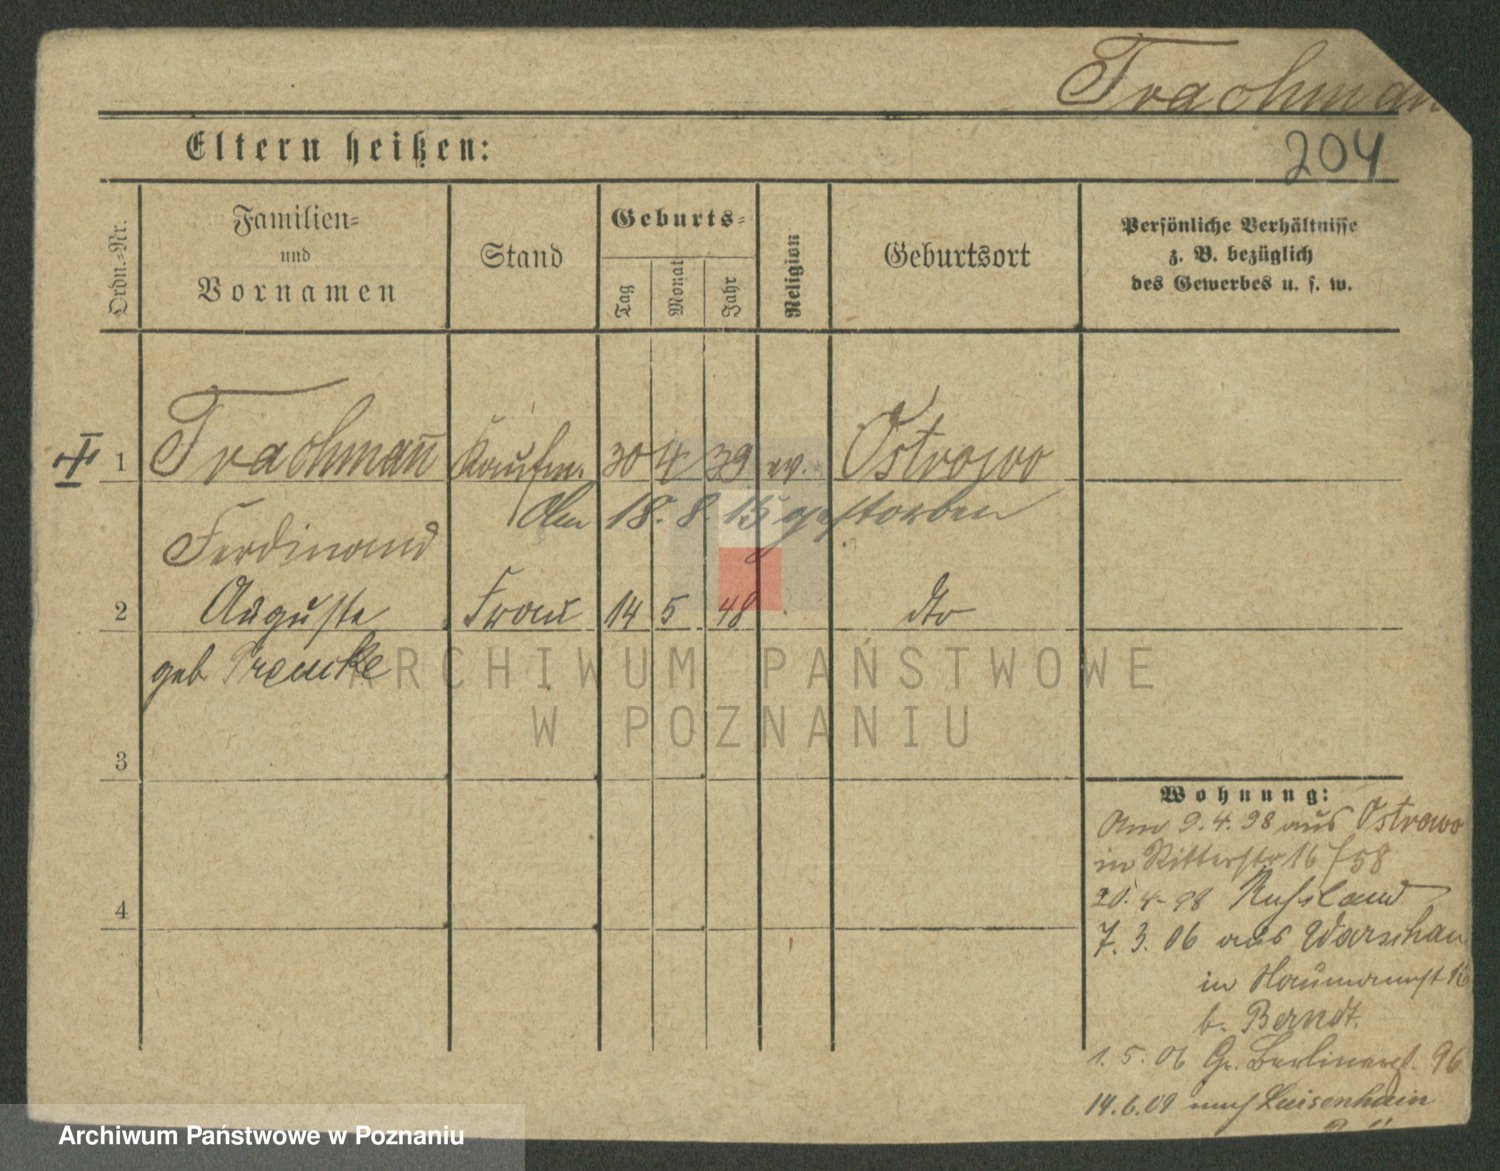 Trachman
204
Eltern heißen:
Ordn.-Nr.
Familien-
und
Vornamen
Stand
Geburts-
Tag
Monat
Jahr
Religion
Geburtsort
Persönliche Verhältnisse
z. B. bezüglich
des Gewerbes u. s. w.
1 Trachmañ Kaufm. 30 4 39 ev. Ostrowo
Am 18. 8. 15 gestorben
Ferdinand
2 Auguste Frau 14 5 48 dto
geb
3
4
Wohnung:
Am 9. 4. 98 aus Ostrowo
in Ritterstr 16 / 58
20. 4. 98 Russland
7. 3. 06 aus Warschau
in Naumannst 16
b. Berndt.
1. 5. 06 Gr. Berlinerst. 96
14. 6. 09 nach Luisenhain
ARCHIWUM PAŃSTWOWE
W POZNANIU
Archiwum Państwowe w Poznaniu